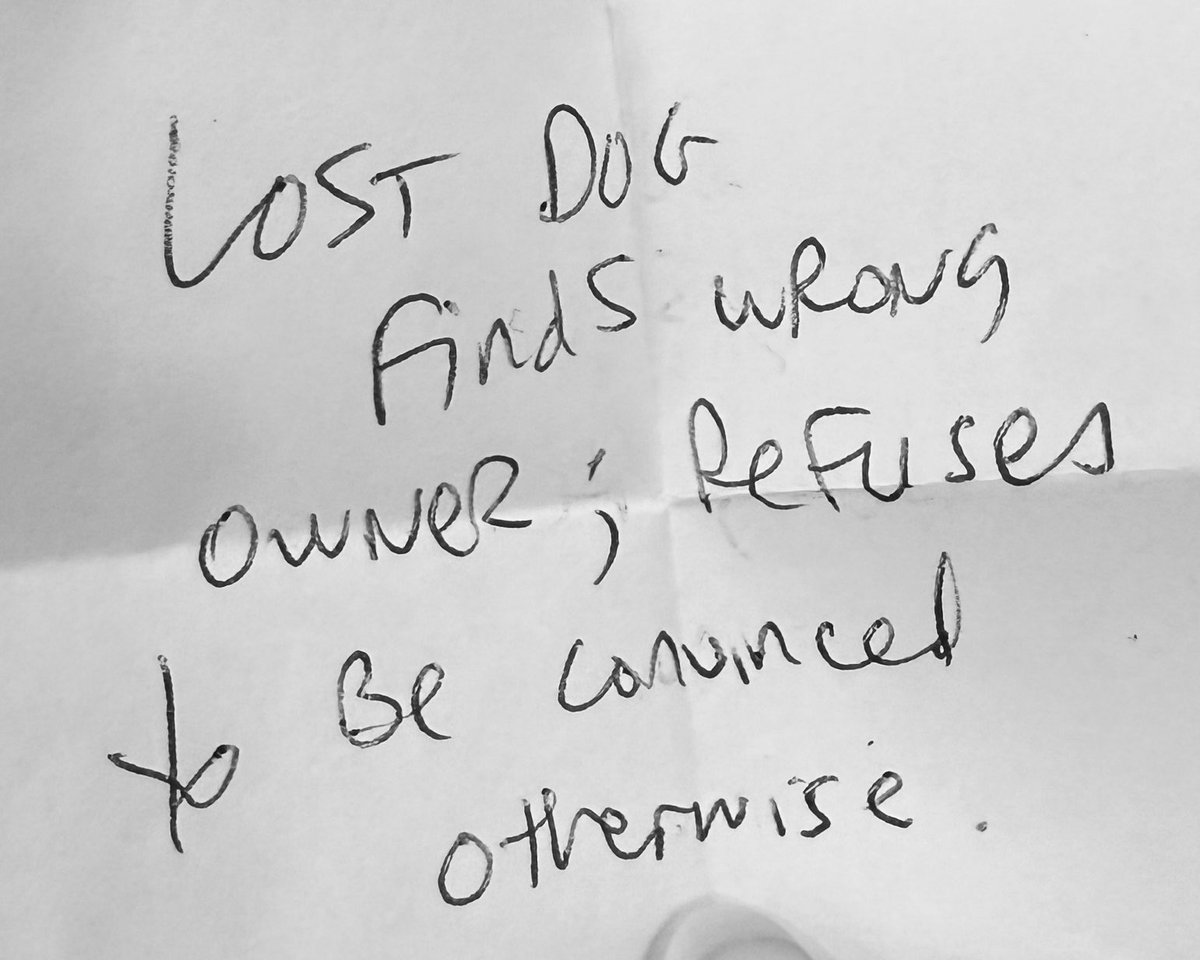 LOST DOG
finds wRong
owneR; Refuses
to Be convinced
otherwise.